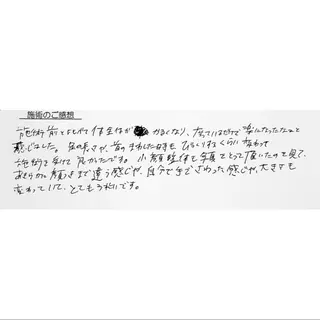 施術のご感想
施術前と比べて体全体が かるくなり、立っているだけで楽になったなぁと
感じました。足の長さや、首のまわした時も びっくりするくらい変わって
施術を受けて良かったです。小顔整体も写真をとって頂いたので見て、
あきらかに顔つきまで違う感じや、自分で手でさわった感じや、大きさも
変わっていて、とてもうれしいです。